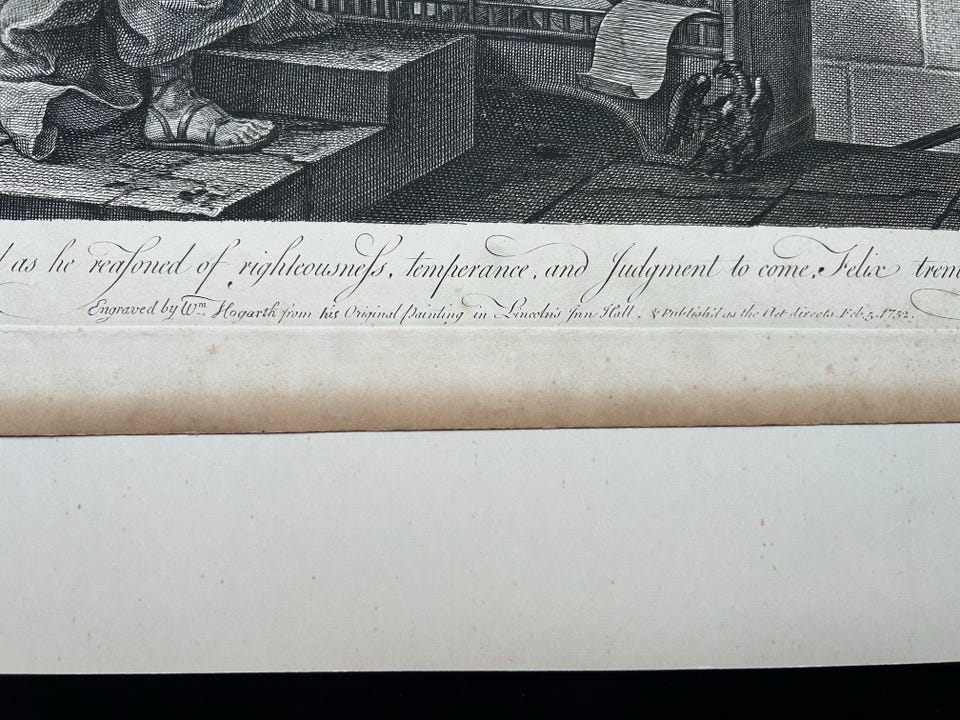 as he reaſoned of righteouſneſs, temperance, and Judgment to come, Felix trem
Engraved by Wm. Hogarth from his Original Painting in Lincoln's Inn Hall, & Publish'd as the Act directs Feb. 5. 1752.